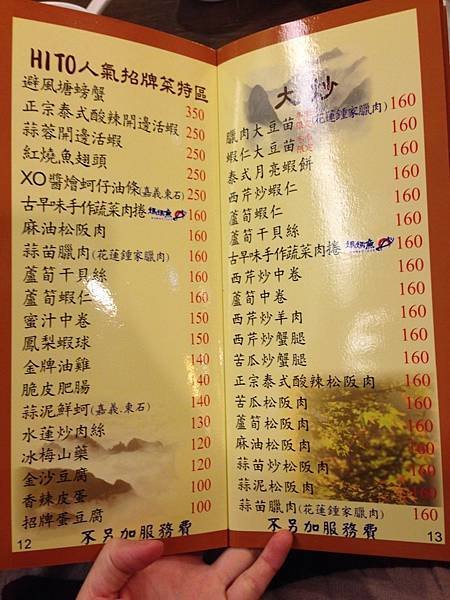 HITO人氣招牌菜特區
避風塘螃蟹 350
正宗泰式酸辣開邊活蝦 250
蒜蓉開邊活蝦 250
紅燒魚翅頭 250
XO醬燴蚵仔油條(嘉義.東石) 250
古早味手作蔬菜肉捲 160
麻油松阪肉 160
蒜苗臘肉(花蓮鍾家臘肉) 160
蘆筍干貝絲 160
蘆筍蝦仁 160
蜜汁中卷 150
鳳梨蝦球 150
金牌油雞 140
脆皮肥腸 140
蒜泥鮮蚵(嘉義.東石) 140
水蓮炒肉絲 130
冰梅山藥 120
金沙豆腐 120
香辣皮蛋 100
招牌蛋豆腐 100
不另加服務費
12
大炒
臘肉大豆苗(花蓮鍾家臘肉) 160
蝦仁大豆苗 160
泰式月亮蝦餅 160
西芹炒蝦仁 160
蘆筍蝦仁 160
蘆筍干貝絲 160
古早味手作蔬菜肉捲 160
西芹炒中卷 160
蘆筍中卷 160
西芹炒羊肉 160
西芹炒蟹腿 160
苦瓜炒蟹腿 160
正宗泰式酸辣松阪肉 160
苦瓜松阪肉 160
蘆筍松阪肉 160
麻油松阪肉 160
蒜苗炒松阪肉 160
蒜泥松阪肉 160
蒜苗臘肉(花蓮鍾家臘肉) 160
不另加服務費
13